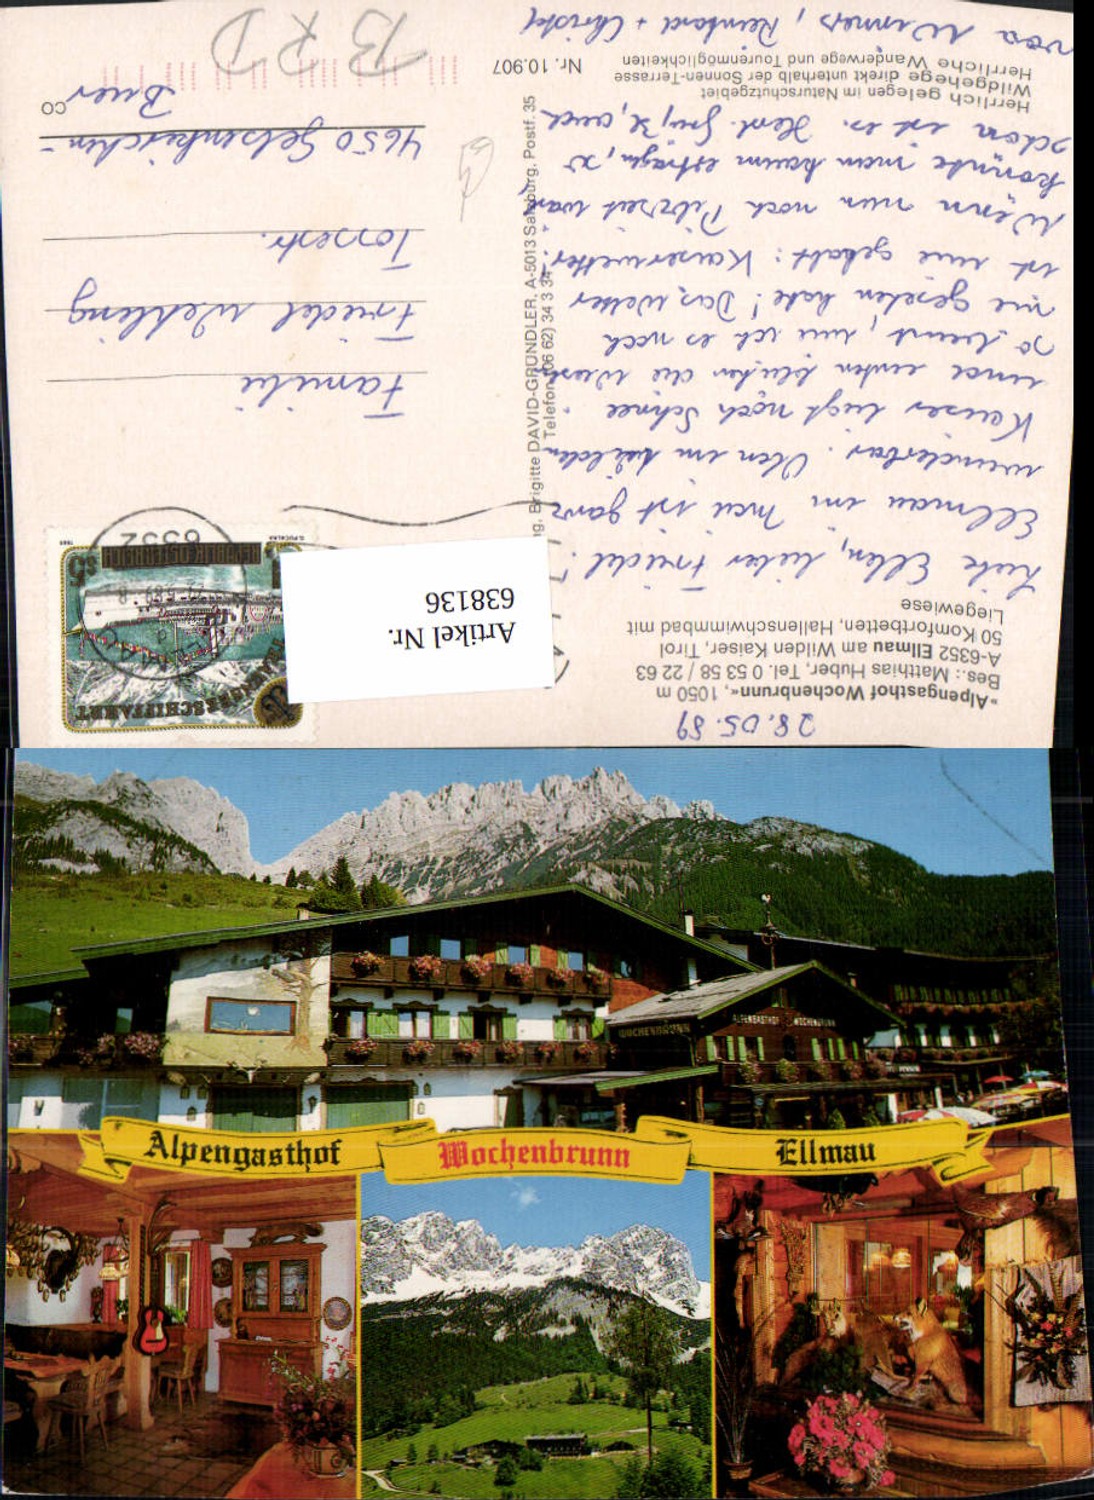 28.05.89
»Alpengasthof Wochenbrunn«, 1050 m
Bes.: Matthias Huber, Tel. 0 53 58 / 22 63
A-6352 Ellmau am Wilden Kaiser, Tirol
50 Komfortbetten, Hallenschwimmbad mit
Liegewiese
Liebe Ellen, lieber Friedel!
Ellmau im Mai ist ganz
wunderbar. Oben im Wilden
Kaiser liegt noch Schnee
und unten blühen die Wiesen
so bunt, wie ich es noch
nie gesehen habe! Das Wetter
ist wie gehabt: Kaiserwetter!
Wenn nun noch Pilzzeit wär,
könnte man kaum ertragen, so
schön ist es. Herzl. Grüße, auch
von Werners, Reinhard + Christel
Herrlich gelegen im Naturschutzgebiet
Wildgehege direkt unterhalb der Sonnen-Terrasse
Herrliche Wanderwege und Tourenmöglichkeiten
Nr. 10.907
Brigitte DAVID-GRÜNDLER, A-5013 Salzburg, Postf. 35
Telefon (06 62) 34 3 34
Artikel Nr.
638136
REPUBLIK ÖSTERREICH
S5
6352
Familie
Friedel Wehling
Tossestr.
4650 Gelsenkirchen-
Buer
CO
BRD
WOCHENBRUNN
ALPENGASTHOF WOCHENBRUNN
Alpengasthof Wochenbrunn Ellmau